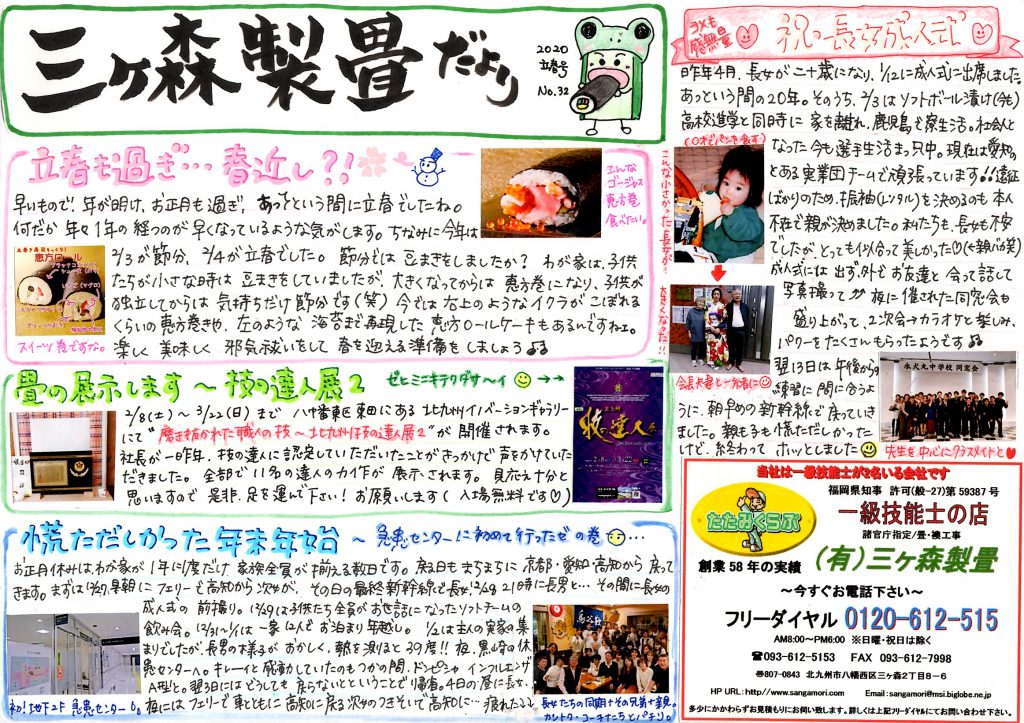 三ヶ森製畳だより
2020
立春号
No.32
立春も過ぎ…春近し?!
早いもので!年が明け、お正月も過ぎ、あっという間に立春でしたね。
何だか年々1年の経つのが早くなっているような気がします。ちなみに今年は
2/3が節分、2/4が立春でした。節分では豆まきをしましたか?わが家は、子供
たちが小さな時は豆まきをしていましたが、大きくなってからは恵方巻になり、子供が
独立してからは気持ちだけ節分です(笑)今では右上のようなイクラがこぼれる
くらいの恵方巻きや、左のような海苔まで再現した恵方ロールケーキもあるんですねェ。
楽しく美味しく邪気祓いをして春を迎える準備をしましょう♫
こんな
ゴージャス
恵方巻
食べたい。
恵方ロール
スイーツ巻ですな。
畳の展示します〜技の達人展2
ゼヒミニキテクダサ〜イ
2/8(土)〜3/22(日)まで八幡東区東田にある北九州イノベーションギャラリー
にて"磨き抜かれた職人の技〜北九州技の達人展2"が開催されます。
社長が一昨年、技の達人に認定していただいたことがきっかけで声をかけていた
だきました。全部で11名の達人の力作が展示されます。見応え十分と
思いますので是非、足を運んで下さい!お願いします(入場無料です♡)
技の達人展
2.8
3.22
慌ただしかった年末年始〜急患センターに初めて行ったぜの巻
お正月休みは、わが家が1年に1度だけ家族全員が揃える数日です。戻る日もまちまちに京都・愛知・高知から戻って
きます。まずは12/27、早朝にフェリーで高知から次女が、その日の最終新幹線で長女、12/28 21時に長男と…その間に長女の
成人式の前撮り。12/29は子供たち全員がお世話になったソフトチームの
飲み会。12/31〜1/1は一家12人でお泊まり年越し。1/2は主人の実家の集
まりでしたが、長男の様子がおかしく、熱を測ると39度!!夜、黒崎の休
急センターへ。キレーイと感動していたのもつかの間、ドンピシャインフルエンザ
A型!と。翌3日にはどうしても戻らないとということで帰省。4日の昼に長女、
夜にはフェリーで車とともに高知に戻る次女のつきそいで高知に…疲れた
初!地下2F急患センター
長女たちの同期+その兄弟+親。
カントク・コーチたちとパチリ。
ヨメも
感無量
祝長女が成人式
昨年4月、長女が二十歳になり、1/12に成人式に出席しました。
あっという間の20年。そのうち、2/3はソフトボール漬け(笑)
高校進学と同時に家を離れ、鹿児島で寮生活。社会人と
なった今も選手生活まっ只中。現在は愛知の
とある実業団チームで頑張っています!!遠征
ばかりのため、振袖(レンタル)を決めるのも本人
不在で親が決めました。私たちも、長女も不安
でしたが、とっても似合って美しかった♡(←親バカ笑)
成人式には出ず、外でお友達と会って話して
写真撮って♫夜に催された同窓会も
盛り上がって、2次会→カラオケと楽しみ、
パワーをたくさんもらったようです♫
翌13日は午後から
練習に間に合うよ
うに、朝早めの新幹線で戻っていき
ました。親も子も慌ただしかった
けど、終わってホッとしました
こんな小さかった長女が…
大きくなった!!
会長夫妻と一緒に
永犬丸中学校 同窓会
先生を中心にクラスメイトと
当社は一級技能士が2名いる会社です
たたみくらぶ
福岡県知事 許可(般-27)第59387号
一級技能士の店
諸官庁指定/畳・襖工事
創業58年の実績
(有)三ヶ森製畳
〜今すぐお電話下さい〜
フリーダイヤル 0120-612-515
AM8:00〜PM6:00 ※日曜・祝日は除く
☎093-612-5153 FAX 093-612-7998
〒807-0843 北九州市八幡西区三ヶ森2丁目8−6
HP URL:http//www.sangamori.com Email:sangamori@msi.biglobe.ne.jp
多少にかかわらずお見積もりにお伺い致します。詳しくは上記フリーダイヤルにてお問い合わせ下さい。